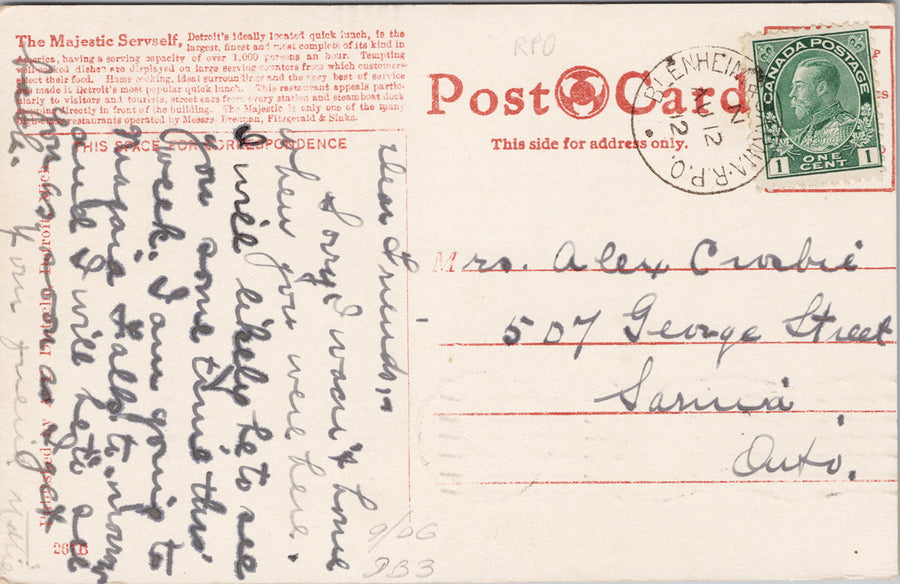 The Majestic Servself, Detroit's ideally located quick lunch, is the
largest, finest and most complete of its kind in
America, having a serving capacity of over 1,000 persons an hour. Tempting
well-cooked dishes are displayed on large serving counters from which customers
select their food. Home cooking, ideal surroundings and the very best of service
has made it Detroit's most popular quick lunch. This restaurant appeals partic-
ularly to visitors and tourists, street cars from every station and steamboat dock
stopping directly in front of the building. The Majestic is only one of the many
high-class restaurants operated by Messrs. Brennan, Fitzgerald & Sinks.
THIS SPACE FOR CORRESPONDENCE
RPO
Post Card
This side for address only.
BLENHEIM & SARNIA. R.P.O.
N
AU 12
12
CANADA POSTAGE
1 ONE CENT 1
Mrs. Alex Crosbie
507 George Street
Sarnia
Onto.
Dear Friends,-
Sorry I wasn't home
when you were here.
I will likely be to see
you some time this
week. I am going to
Niagara Falls to-morrow
and I will be to see
you as soon as I get
back.
your friend
Published by
Detroit, Mich.
2671B
9/06
DB3